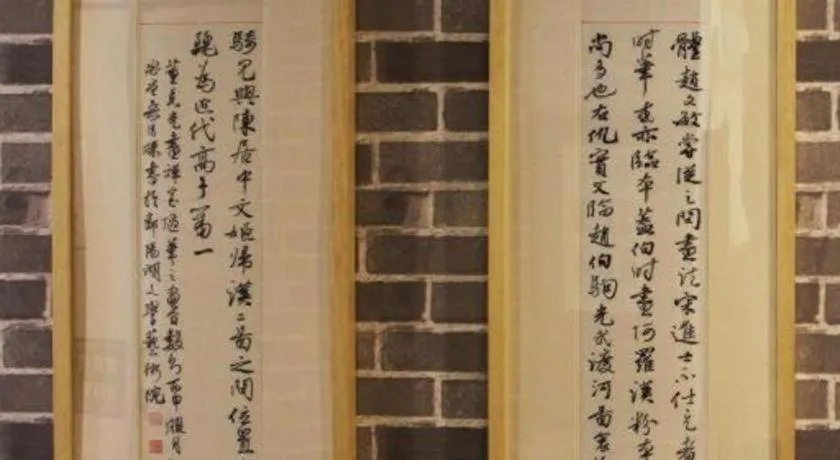 體趙文敏嘗從之問畫法宋進士不仕元者
時筆也亦臨本蓋伯時畫阿羅漢粉本
尚多也右仇實父臨趙伯駒光武渡河圖衣
騎見與陳居中文姬歸漢二圖之間位置
魏為近代高手第一
董其昌畫禪室隨筆之畫旨數則丙申臘月
書於鄱陽湖文學藝術院